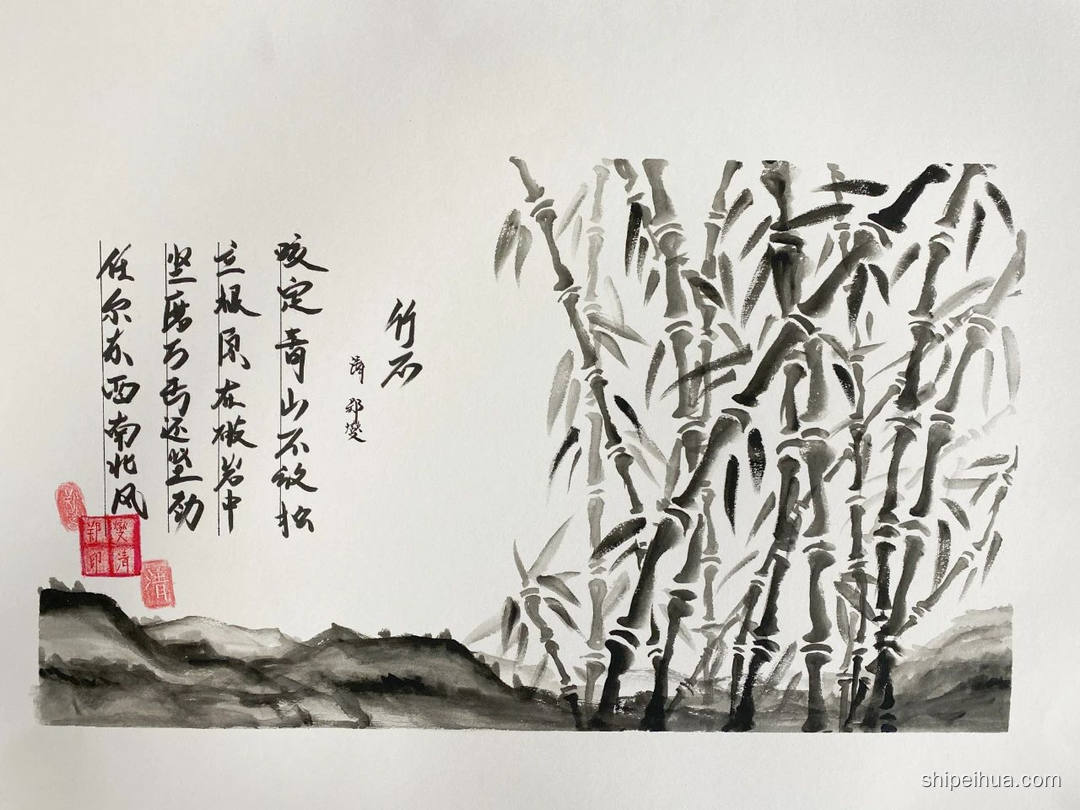 竹石
清 郑燮
咬定青山不放松
立根原在破岩中
坚磨万击还坚劲
任尔东西南北风
shipeihua.com